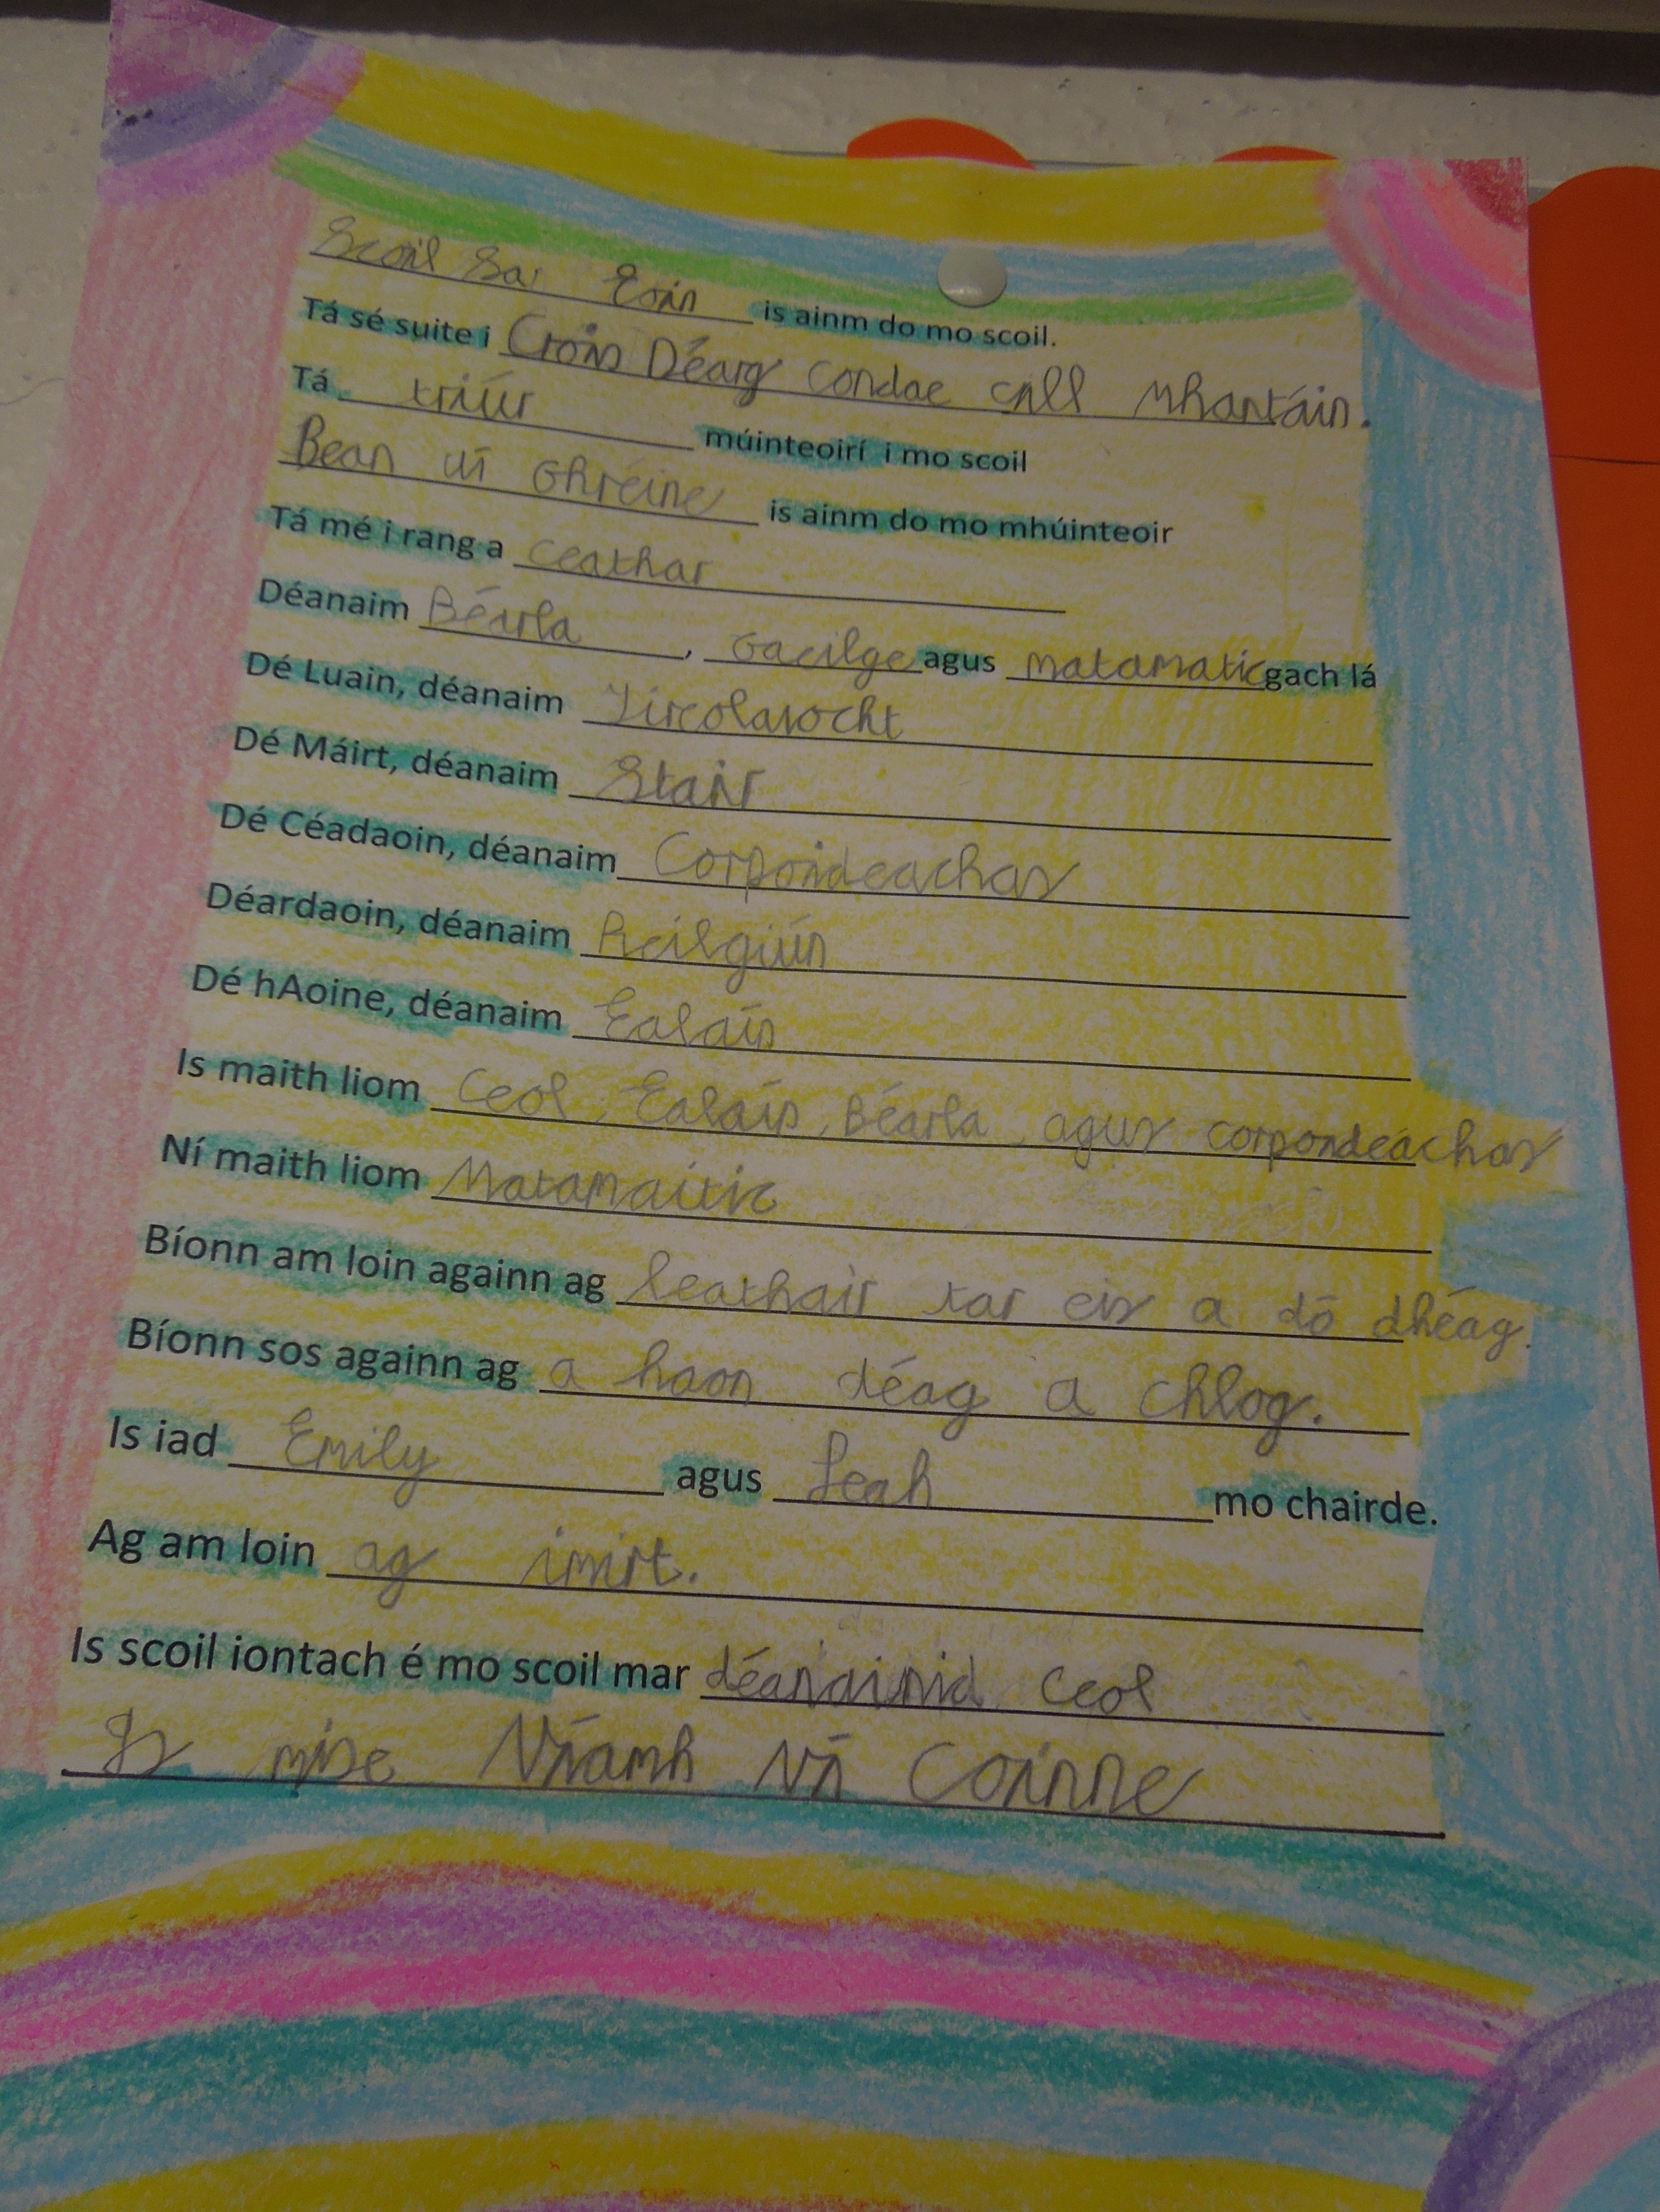 Scoil Sai Eoin is ainm do mo scoil.
Tá sé suite i Crois Déarg condae cill mhantáin.
Tá triúr múinteoirí i mo scoil
Bean uí Ghréine is ainm do mo mhúinteoir
Tá mé i rang a ceathar
Déanaim Béarla, Gaeilge agus matamatic gach lá
Dé Luain, déanaim Tíreolaíocht
Dé Máirt, déanaim Stair
Dé Céadaoin, déanaim Corpoideachas
Déardaoin, déanaim Reiligiún
Dé hAoine, déanaim Ealaín
Is maith liom Ceol, Ealaín, Béarla, agus corpondeachas
Ní maith liom Matamaitic
Bíonn am loin againn ag leathair tar eis a dó dhéag.
Bíonn sos againn ag a haon déag a chlog.
Is iad Emily agus Leah mo chairde.
Ag am loin ag imirt.
Is scoil iontach é mo scoil mar déanaimid ceol
Is mise Níamh Ní Coinne